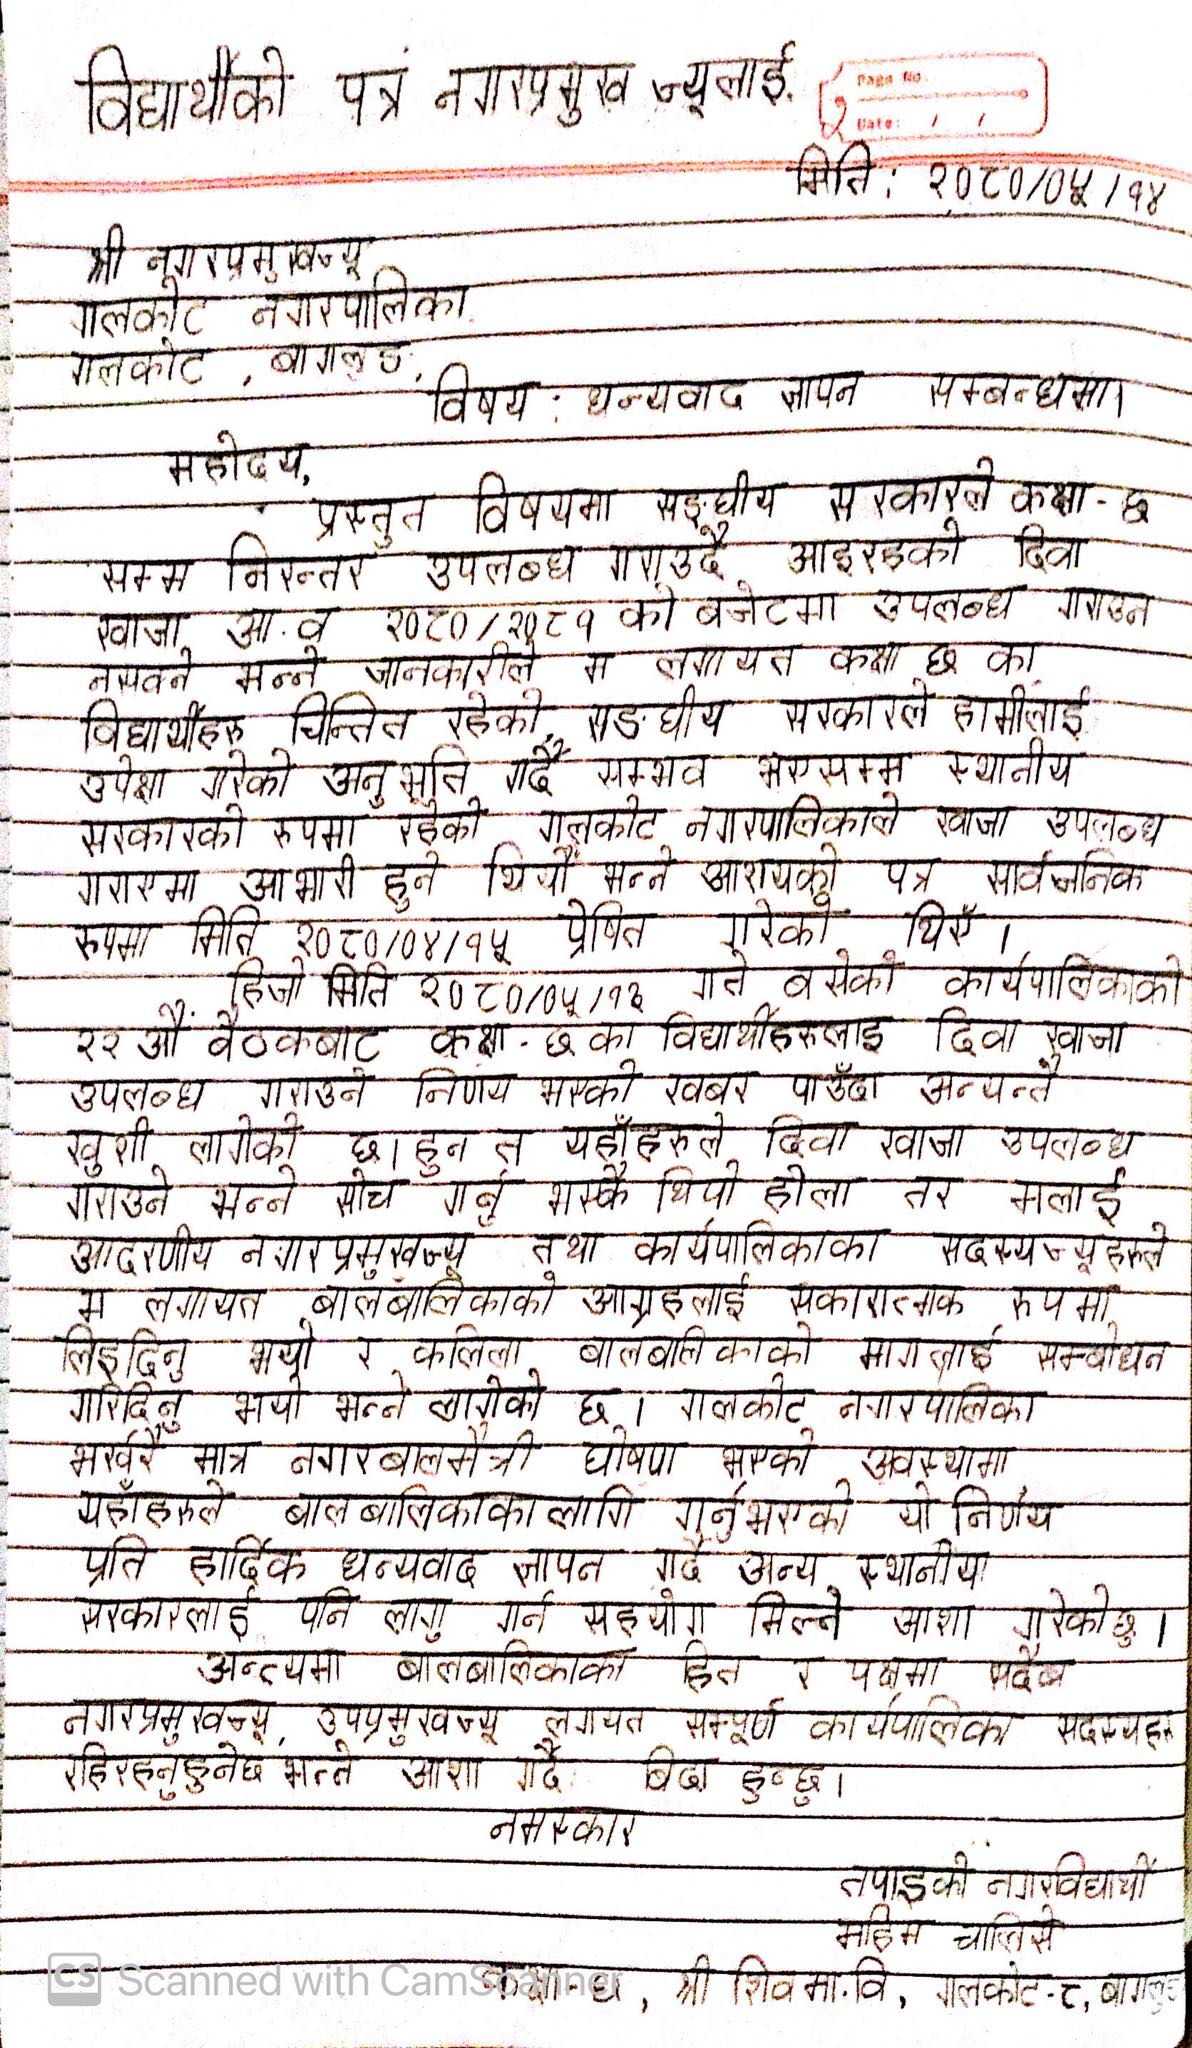 विद्यार्थीको पत्र नगरप्रमुख ज्यूलाई.
Page No.
Date: / /
मिति: २०८०/०५/१४
श्री नगरप्रमुखज्यू
गलकोट नगरपालिका
गलकोट, बागलुङ,
विषय: धन्यवाद ज्ञापन सम्बन्धमा।
महोदय,
प्रस्तुत विषयमा सङ्घीय सरकारले कक्षा-६
सम्म निरन्तर उपलब्ध गराउदै आइरहको दिवा
खाजा आ.व २०८०/२०८१ को बजेटमा उपलब्ध गराउन
नसक्ने भन्ने जानकारीले म लगायत कक्षा ६ का
विद्यार्थीहरु चिन्तित रहेको, सङघीय सरकारले हामीलाई
उपेक्षा गरेको अनुभुति गर्दै सम्भव भएसम्म स्थानीय
सरकारको रुपमा रहेको गलकोट नगरपालिकाले खाजा उपलब्ध
गराएमा आभारी हुने थियौं भन्ने आशयको पत्र सार्वजनिक
रुपमा मिति २०८०/०४/१५ प्रेषित गरेको थिएँ।
हिजो मिति २०८०/०५/१३ गते बसेको कार्यपालिकाको
२२ औं बैठकबाट कक्षा-६ का विद्यार्थीहरुलाइ दिवा खाजा
उपलब्ध गराउने निर्णय भएको खबर पाउँदा अन्यन्तै
खुशी लागेको छ। हुन त यहाँहरुले दिवा खाजा उपलब्ध
गराउने भन्ने सोच गर्नु भएकै थियो होला तर मलाई
आदरणीय नगरप्रमुखज्यू तथा कार्यपालिकाका सदस्यज्यूहरुले
म लगायत बालबालिकाको आग्रहलाई सकारात्मक रुपमा
लिइदिनु भयो र कलिला बालबालिकाको मागलाई सम्बोधन
गरिदिनु भयो भन्ने लागेको छ। गलकोट नगरपालिका
भर्खरै मात्र नगरबालमैत्री घोषणा भएको अवस्थामा
यहाँहरुले बालबालिकाका लागि गर्नुभएको यो निर्णय
प्रति हार्दिक धन्यवाद ज्ञापन गर्दै अन्य स्थानीय
सरकारलाई पनि लागु गर्न सहयोग मिल्ने आशा गरेको छु।
अन्त्यमा बालबालिकाका हित र पक्षमा सदैब
नगरप्रमुखज्यू, उपप्रमुखज्यू लगयत सम्पूर्ण कार्यपालिका सदस्यहरु
रहिरहनुहुनेछ भन्ने आशा गर्दै बिदा हुन्छु।
नमस्कार
तपाइको नगरविद्यार्थी
महिम चालिसे
कक्षा-६, श्री शिव मा.वि, गलकोट-८, बागलुङ
CS Scanned with CamScanner